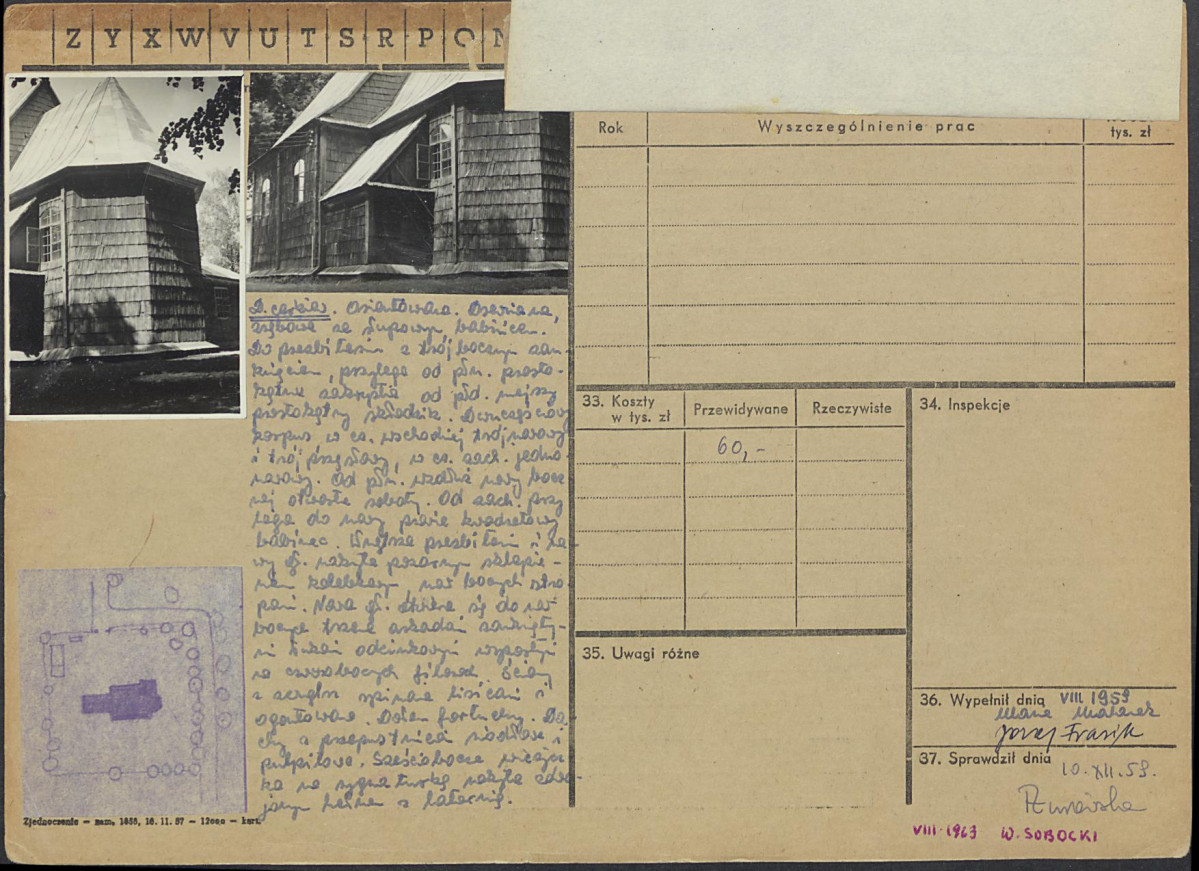 Z Y X W V U T S R P O N
D. cerkiew. Orientowana. Drewniana,
zrębowa ze słupowym babińcem.
Do prezbiterium z trójbocznym zam-
knięciem, przylega od płn. prosto-
kątna zakrystia od płd. mniejszy
prostokątny składzik. Dwuczęściowy
korpus, w cz. wschodniej trójnawowy
i trójprzęsłowy, w cz. zach. jedno-
nawowy. Od płn. wzdłuż nawy bocz
nej otwarte soboty. Od zach. przy
lega do nawy prawie kwadratowy
babiniec. Wnętrze prezbiterium i na-
wy gł. nakryte pozornym sklepie-
niem kolebkowym naw bocznych stro
pami. Nawa gł. otwiera się do naw
bocznych trzema arkadami zamknięty-
mi łukami odcinkowymi wspartymi
na czworobocznych filarach. Ściany
z zewnątrz spinane lisicami i
ogontowane. Dołem fartuchy. Da
chy z przepustnicą siodłowe i
pulpitowe. Sześcioboczna wieżycz
ka na sygnaturkę nakryta
hełmem z latarnią.
Zjednoczenie — zam. 1855, 16. 11. 57 — 12000 — kart.
Rok
Wyszczególnienie prac
tys. zł
33. Koszty
w tys. zł
Przewidywane
Rzeczywiste
60,-
34. Inspekcje
35. Uwagi różne
36. Wypełnił dnia VIII 1959
Józef Frazik
37. Sprawdził dnia
10.XII.59.
VIII-1963 W. SOBOCKI